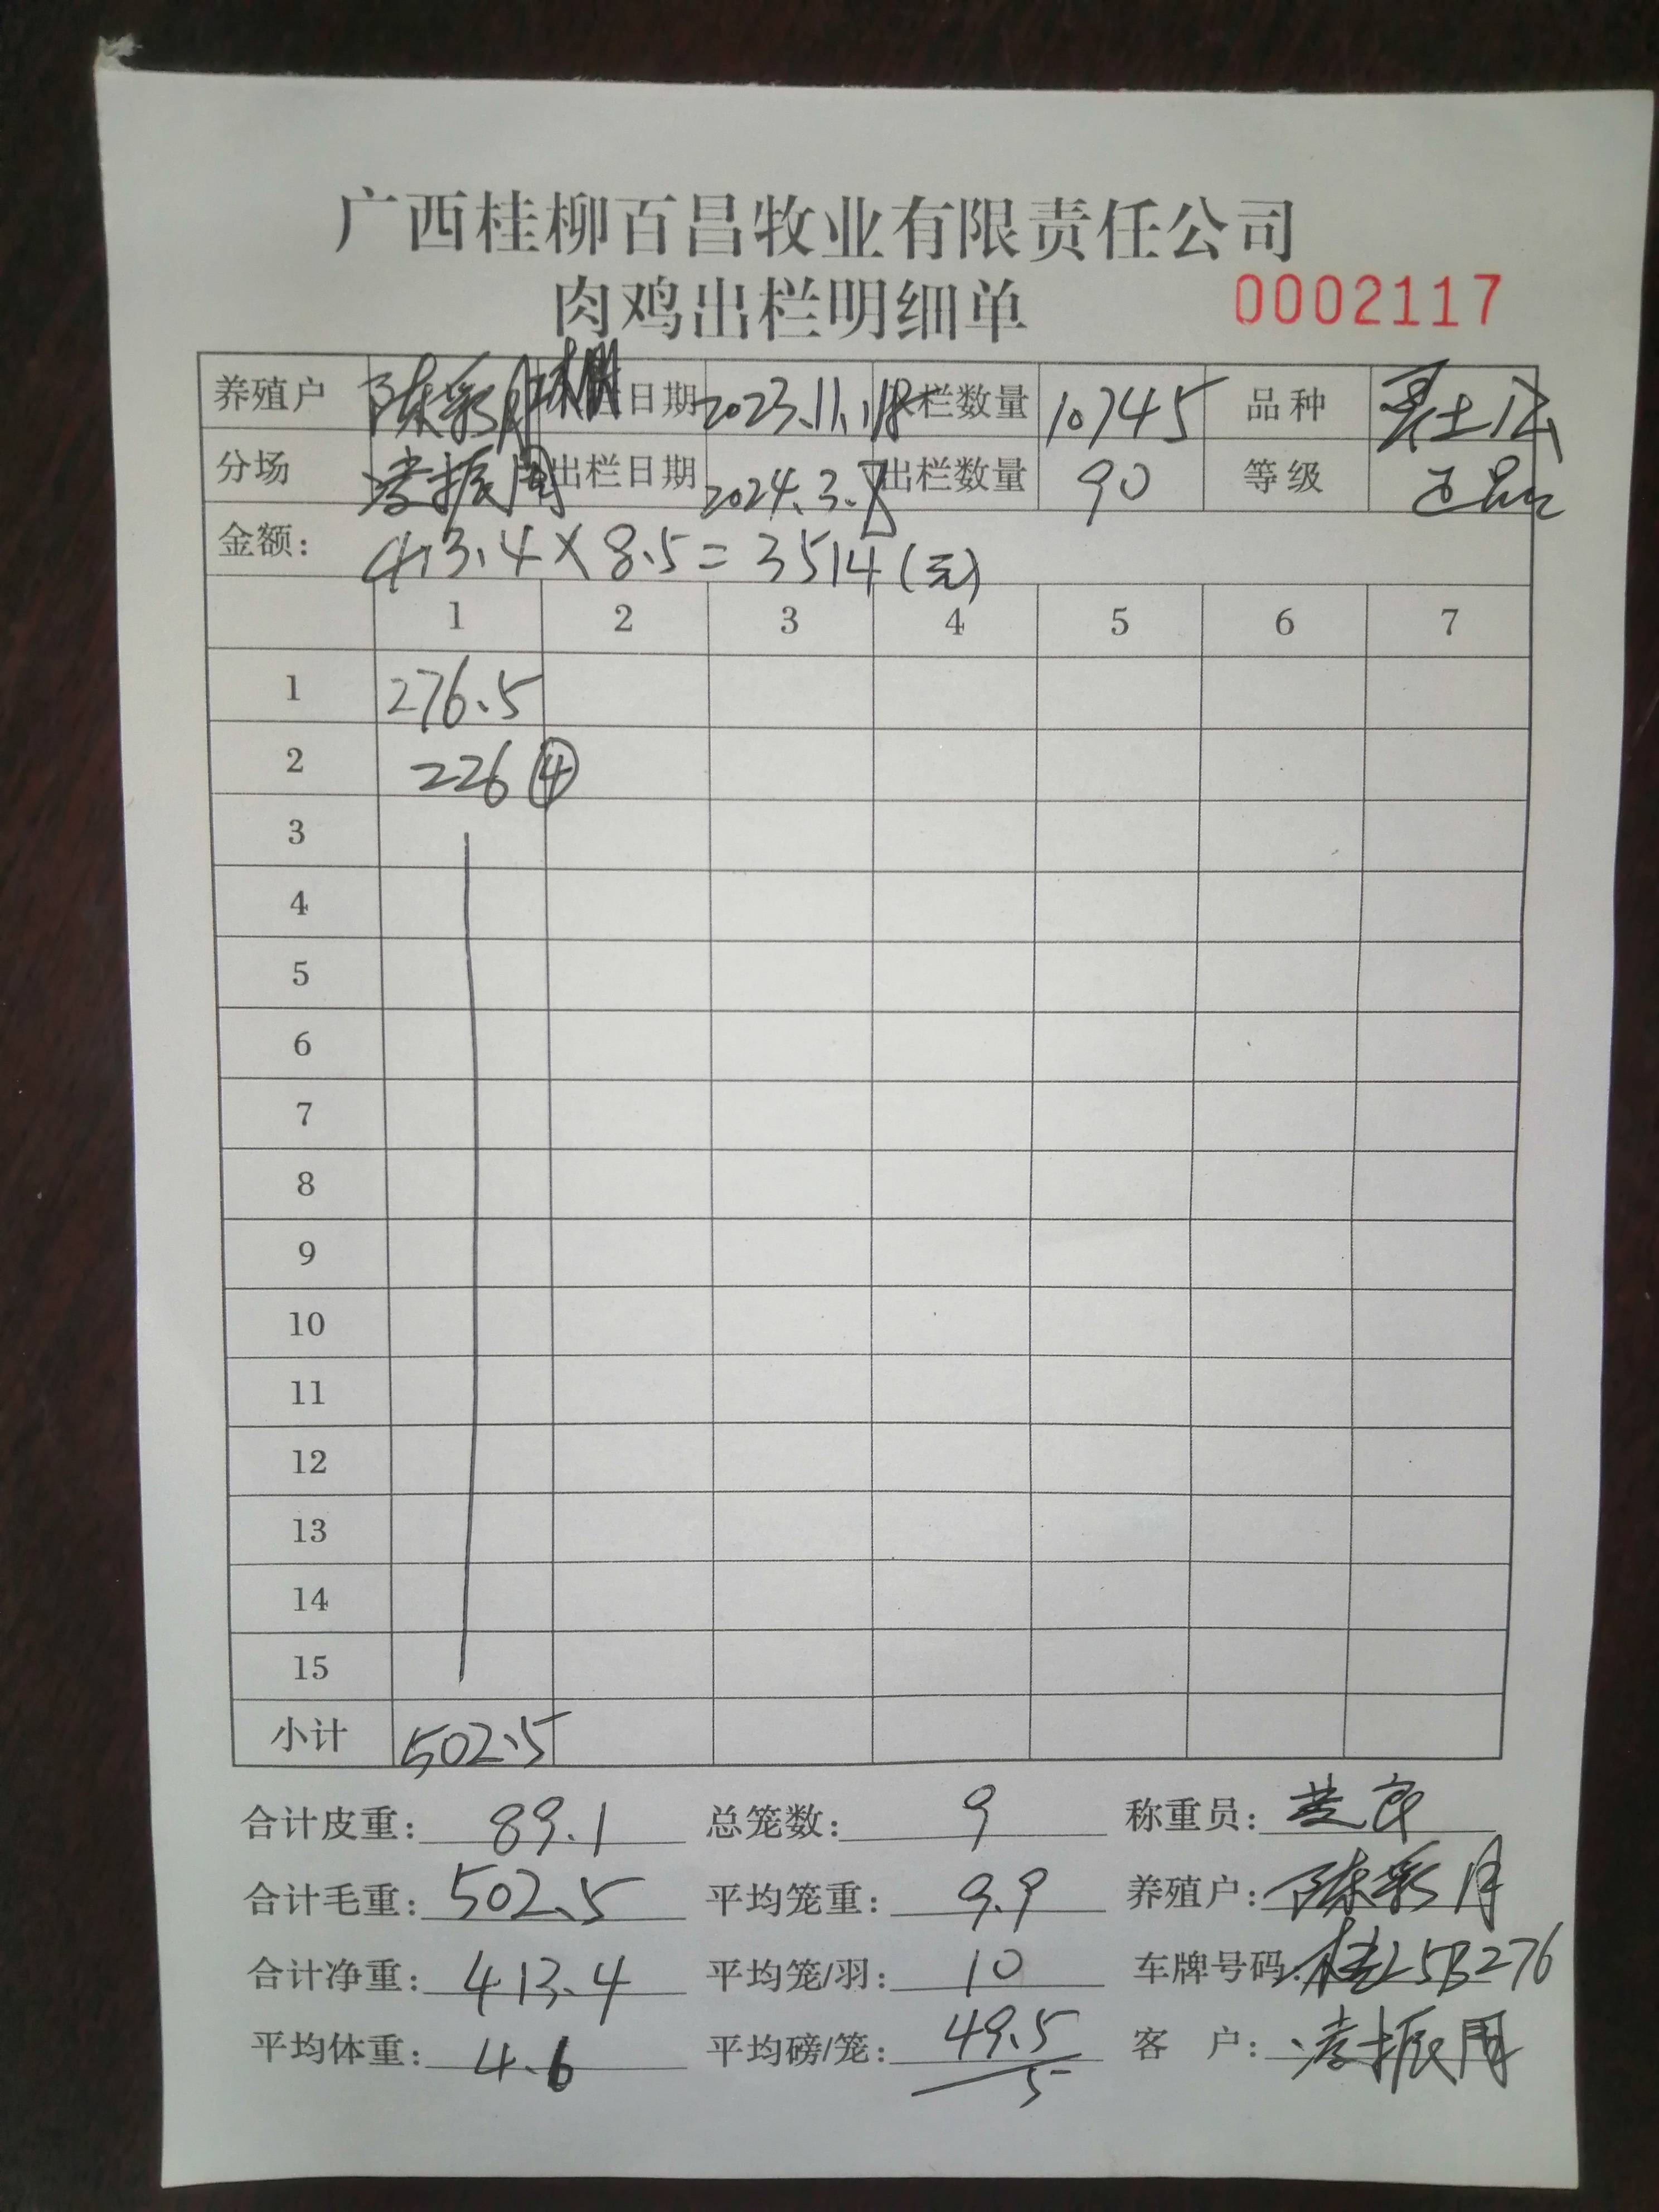 广西桂柳百昌牧业有限责任公司
肉鸡出栏明细单 0002117
养殖户 陈彩月 日期 2023.11.18 栏数量 10745 品种
分场 凌振周 出栏日期 2024.3.8 出栏数量 90 等级 正品
金额: 413.4×8.5=3514(元)
1 2 3 4 5 6 7
1 276.5
2 226 ④
3
4
5
6
7
8
9
10
11
12
13
14
15
小计 502.5
合计皮重: 89.1 总笼数: 9 称重员:
合计毛重: 502.5 平均笼重: 9.9 养殖户: 陈彩月
合计净重: 413.4 平均笼/羽: 10 车牌号码: 桂25B276
平均体重: 4.6 平均磅/笼: 49.5/5 客 户: 凌振周